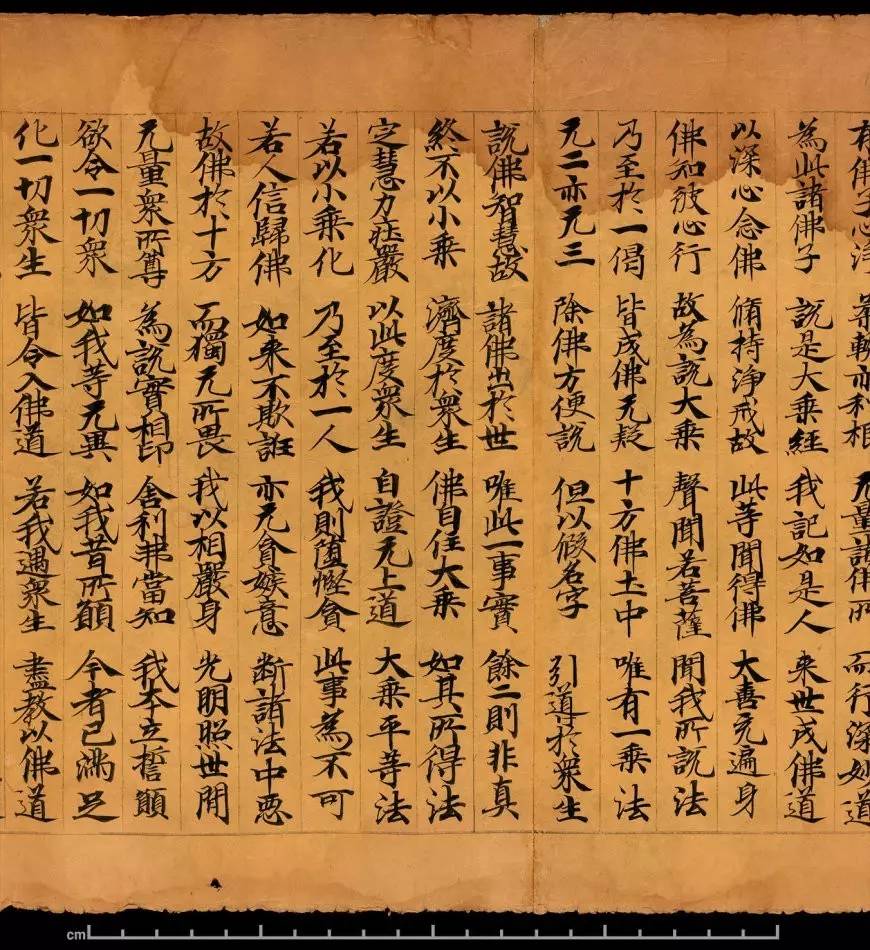 有佛子心淨 柔軟亦利根 无量諸佛所 而行深妙道
為此諸佛子 說是大乗經 我記如是人 来世成佛道
以深心念佛 脩持淨戒故 此等聞得佛 大喜充遍身
佛知彼心行 故為說大乗 聲聞若菩薩 聞我所說法
乃至於一偈 皆成佛无疑 十方佛土中 唯有一乗法
无二亦无三 除佛方便說 但以假名字 引導於衆生
說佛智慧故 諸佛出於世 唯此一事實 餘二則非真
終不以小乗 濟度於衆生 佛自住大乗 如其所得法
定慧力莊嚴 以此度衆生 自證无上道 大乗平等法
若以小乗化 乃至於一人 我則墮慳貪 此事為不可
若人信歸佛 如来不欺誑 亦无貪嫉意 断諸法中惡
故佛於十方 而獨无所畏 我以相嚴身 光明照世間
无量衆所尊 為說實相印 舍利弗當知 我本立誓願
欲令一切衆 如我等无異 如我昔所願 今者已滿足
化一切衆生 皆令入佛道 若我遇衆生 盡教以佛道
cm